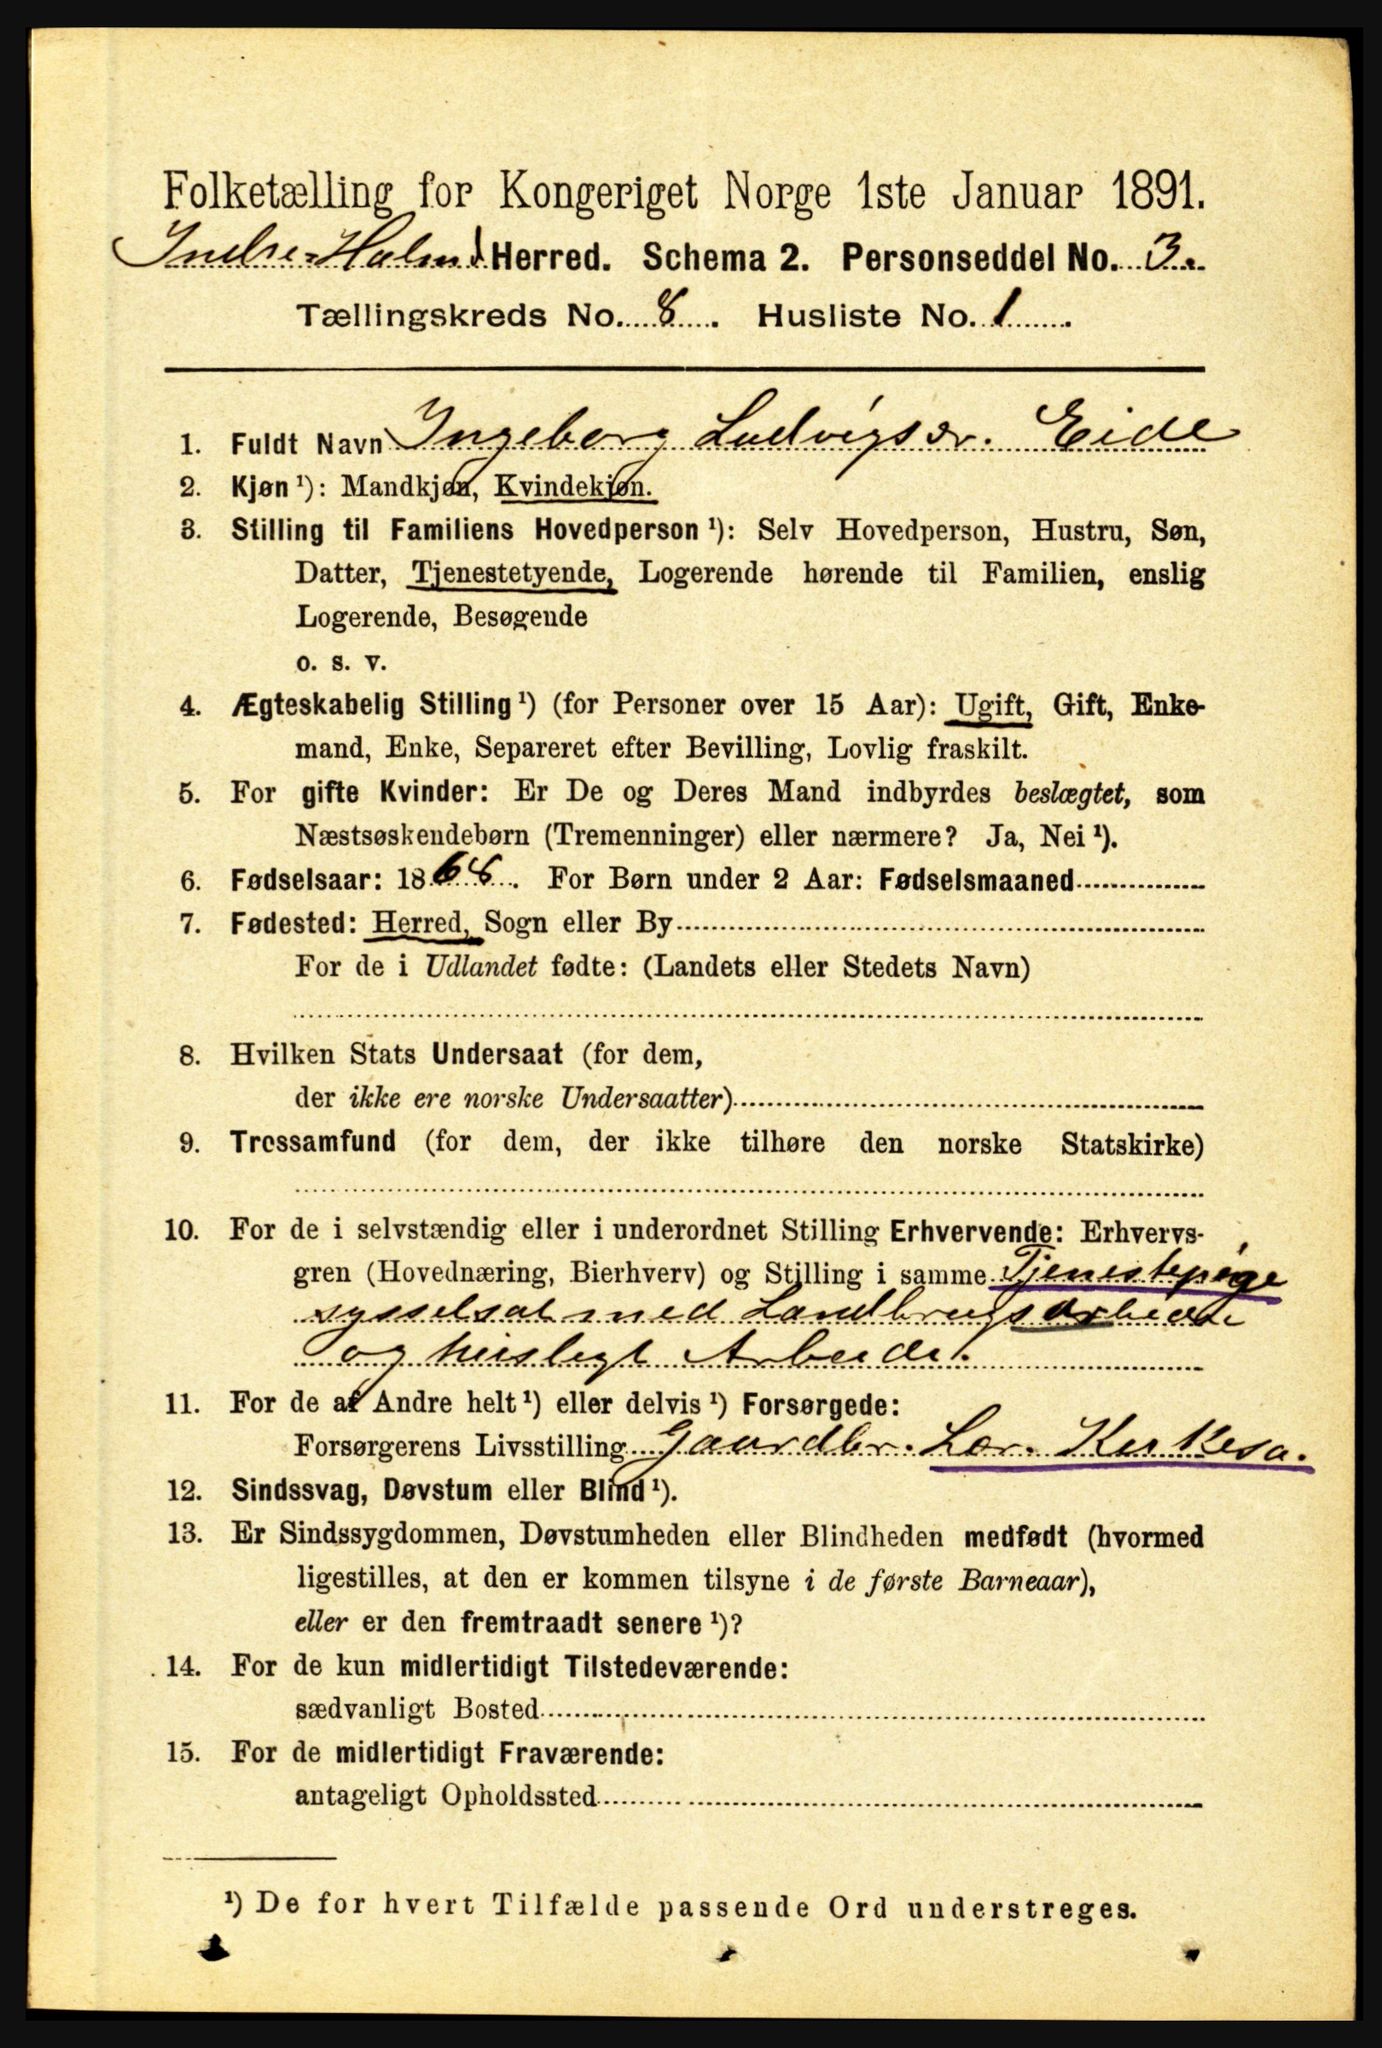 Folketælling for Kongeriget Norge 1ste Januar 1891.
Indre Holmd Herred. Schema 2. Personseddel No. 3.
Tællingskreds No. 8. Husliste No. 1.
1. Fuldt Navn Ingeborg Ludvigsdr. Eide
2. Kjøn ¹): Mandkjøn, Kvindekjøn.
3. Stilling til Familiens Hovedperson ¹): Selv Hovedperson, Hustru, Søn,
Datter, Tjenestetyende, Logerende hørende til Familien, enslig
Logerende, Besøgende
o. s. v.
4. Ægteskabelig Stilling ¹) (for Personer over 15 Aar): Ugift, Gift, Enke-
mand, Enke, Separeret efter Bevilling, Lovlig fraskilt.
5. For gifte Kvinder: Er De og Deres Mand indbyrdes beslægtet, som
Næstsøskendebørn (Tremenninger) eller nærmere? Ja, Nei ¹).
6. Fødselsaar: 1868. For Børn under 2 Aar: Fødselsmaaned
7. Fødested: Herred, Sogn eller By
For de i Udlandet fødte: (Landets eller Stedets Navn)
8. Hvilken Stats Undersaat (for dem,
der ikke ere norske Undersaatter)
9. Trossamfund (for dem, der ikke tilhøre den norske Statskirke)
10. For de i selvstændig eller i underordnet Stilling Erhvervende: Erhvervs-
gren (Hovednæring, Bierhverv) og Stilling i samme Tjenestepige
sysselsat med Landbrugsarbeide
og husligt Arbeide.
11. For de af Andre helt ¹) eller delvis ¹) Forsørgede:
Forsørgerens Livsstilling Gaardbr.
12. Sindssvag, Døvstum eller Blind ¹).
13. Er Sindssygdommen, Døvstumheden eller Blindheden medfødt (hvormed
ligestilles, at den er kommen tilsyne i de første Barneaar),
eller er den fremtraadt senere ¹)?
14. For de kun midlertidigt Tilstedeværende:
sædvanligt Bosted
15. For de midlertidigt Fraværende:
antageligt Opholdssted
¹) De for hvert Tilfælde passende Ord understreges.